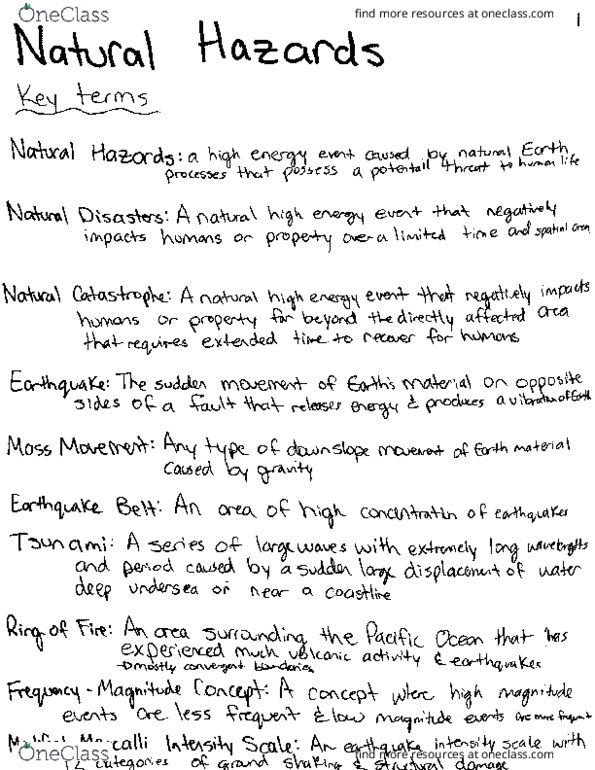 OneClass
find more resources at oneclass.com
1
Natural Hazards
Key terms
Natural Hazards: a high energy event caused by natural Earth
processes that possess a potentail threat to human life
Natural Disasters: A natural high energy event that negatively
impacts humans or property over a limited time and spatial area
Natural Catastrophe: A natural high energy event that negatively impacts
humans or property far beyond the directly affected area
that requires extended time to recover for humans
Earthquake: The sudden movement of Earth's material on opposite
sides of a fault that releases energy & produces a vibration of Earth
Mass Movement: Any type of downslope movement of Earth material
caused by gravity
Earthquake Belt: An area of high concentration of earthquakes
Tsunami: A series of large waves with extremely long wavelengths
and period caused by a sudden large displacement of water
deep undersea or near a coastline
Ring of Fire: An area surrounding the Pacific Ocean that has
experienced much volcanic activity & earthquakes
mostly convergent boundaries
Frequency - Magnitude Concept: A concept where high magnitude
events are less frequent & low magnitude events are more frequent
Intensity Scale: An earthquake intensity scale with
12 categories of ground shaking & structural damage
OneClass
find more resources at oneclass.com